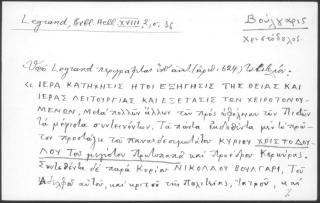 Legrand, Bibl. Hell. XVIII 2, σ. 36
Βούλγαρις
Χριστόδουλος.
Ὑπὸ Legrand περιγράφεται (ἀριθ. 624) τὸ βιβλίον:
« ΙΕΡΑ ΚΑΤΗΧΗΣΙΣ ΗΤΟΙ ΕΞΗΓΗΣΙΣ ΤΗΣ ΘΕΙΑΣ ΚΑΙ
ΙΕΡΑΣ ΛΕΙΤΟΥΡΓΙΑΣ ΚΑΙ ΕΞΕΤΑΣΙΣ ΤΩΝ ΧΕΙΡΟΤΟΝΟΥ-
ΜΕΝΩΝ, Μετὰ πολλῶν ἄλλων τῶν πρὸς ὠφέλειαν τῶν Πιστῶν
τὰ μέγιστα συντεινόντων. Τὰ πάντα ἐκδοθέντα μὲ τὴν
προσταγὴν τοῦ πανοσιολογιωτάτου ΚΥΡΙΟΥ ΧΡΙΣΤΟΔΟΥ-
ΛΟΥ Τοῦ μεγίστου Πρωτοπαπᾶ καὶ Προέδρου Κερκύρας.
Συντεθέντα δὲ παρὰ Κυρίου ΝΙΚΟΛΑΟΥ ΒΟΥΛΓΑΡΙ, Τοῦ
Ἀδελφοῦ αὐτοῦ, καὶ κριτοῦ τῆς Πολιτείας, Ἰατροῦ, καὶ